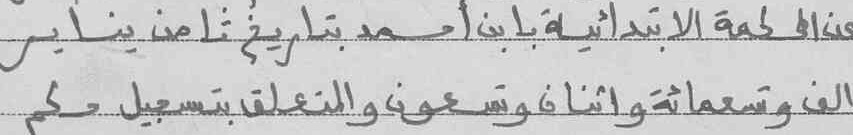 عن المحكمة الابتدائية بابن أحمد بتاريخ ثامن يناير
الف وتسعمائة واثنان وتسعون والمتعلق بتسجيل حكم